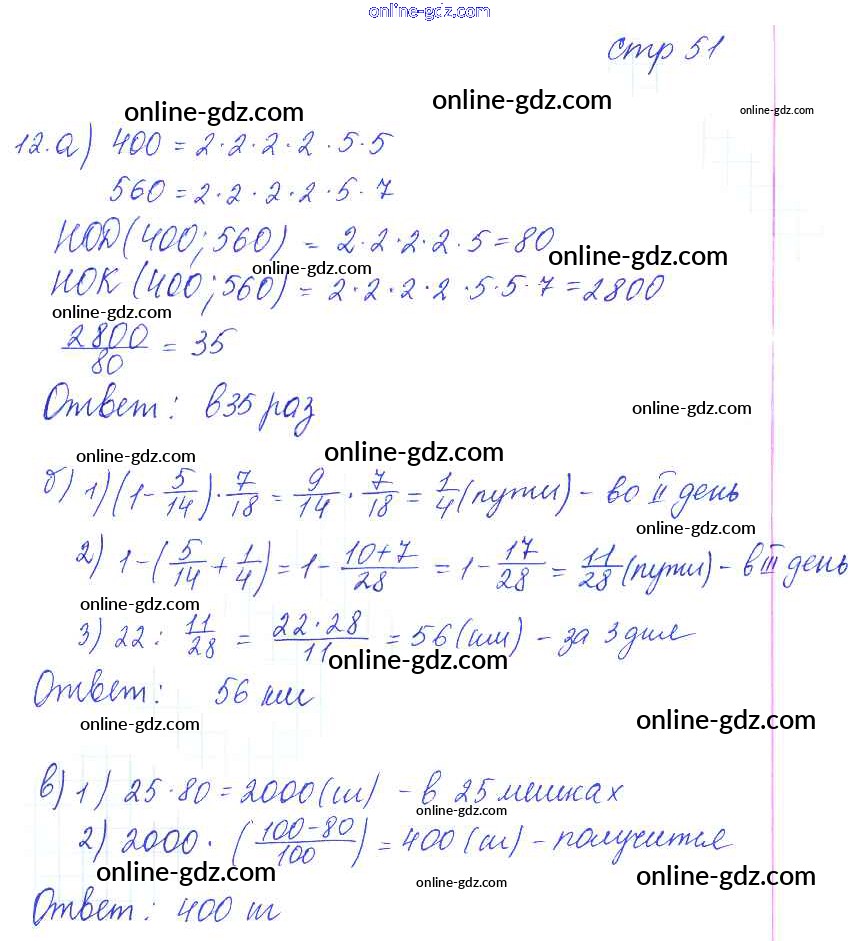 online-gdz.com
стр 51
online-gdz.com online-gdz.com online-gdz.com
12. а) 400 = 2·2·2·2·5·5
560 = 2·2·2·2·5·7
НОД (400; 560) = 2·2·2·2·5 = 80
online-gdz.com online-gdz.com
НОК (400; 560) = 2·2·2·2·5·5·7 = 2800
online-gdz.com
2800/80 = 35
Ответ: в 35 раз
online-gdz.com
online-gdz.com online-gdz.com
б) 1) (1 - 5/14) · 7/18 = 9/14 · 7/18 = 1/4 (пути) - во II день
online-gdz.com
2) 1 - (5/14 + 1/4) = 1 - 10+7/28 = 1 - 17/28 = 11/28 (пути) - в III день
online-gdz.com
3) 22 : 11/28 = 22·28/11 = 56 (км) - за 3 дня
online-gdz.com
Ответ: 56 км
online-gdz.com online-gdz.com
в) 1) 25·80 = 2000 (ш) - в 25 мешках
online-gdz.com
2) 2000 · (100-80/100) = 400 (ш) - получится
online-gdz.com online-gdz.com online-gdz.com
Ответ: 400 ш